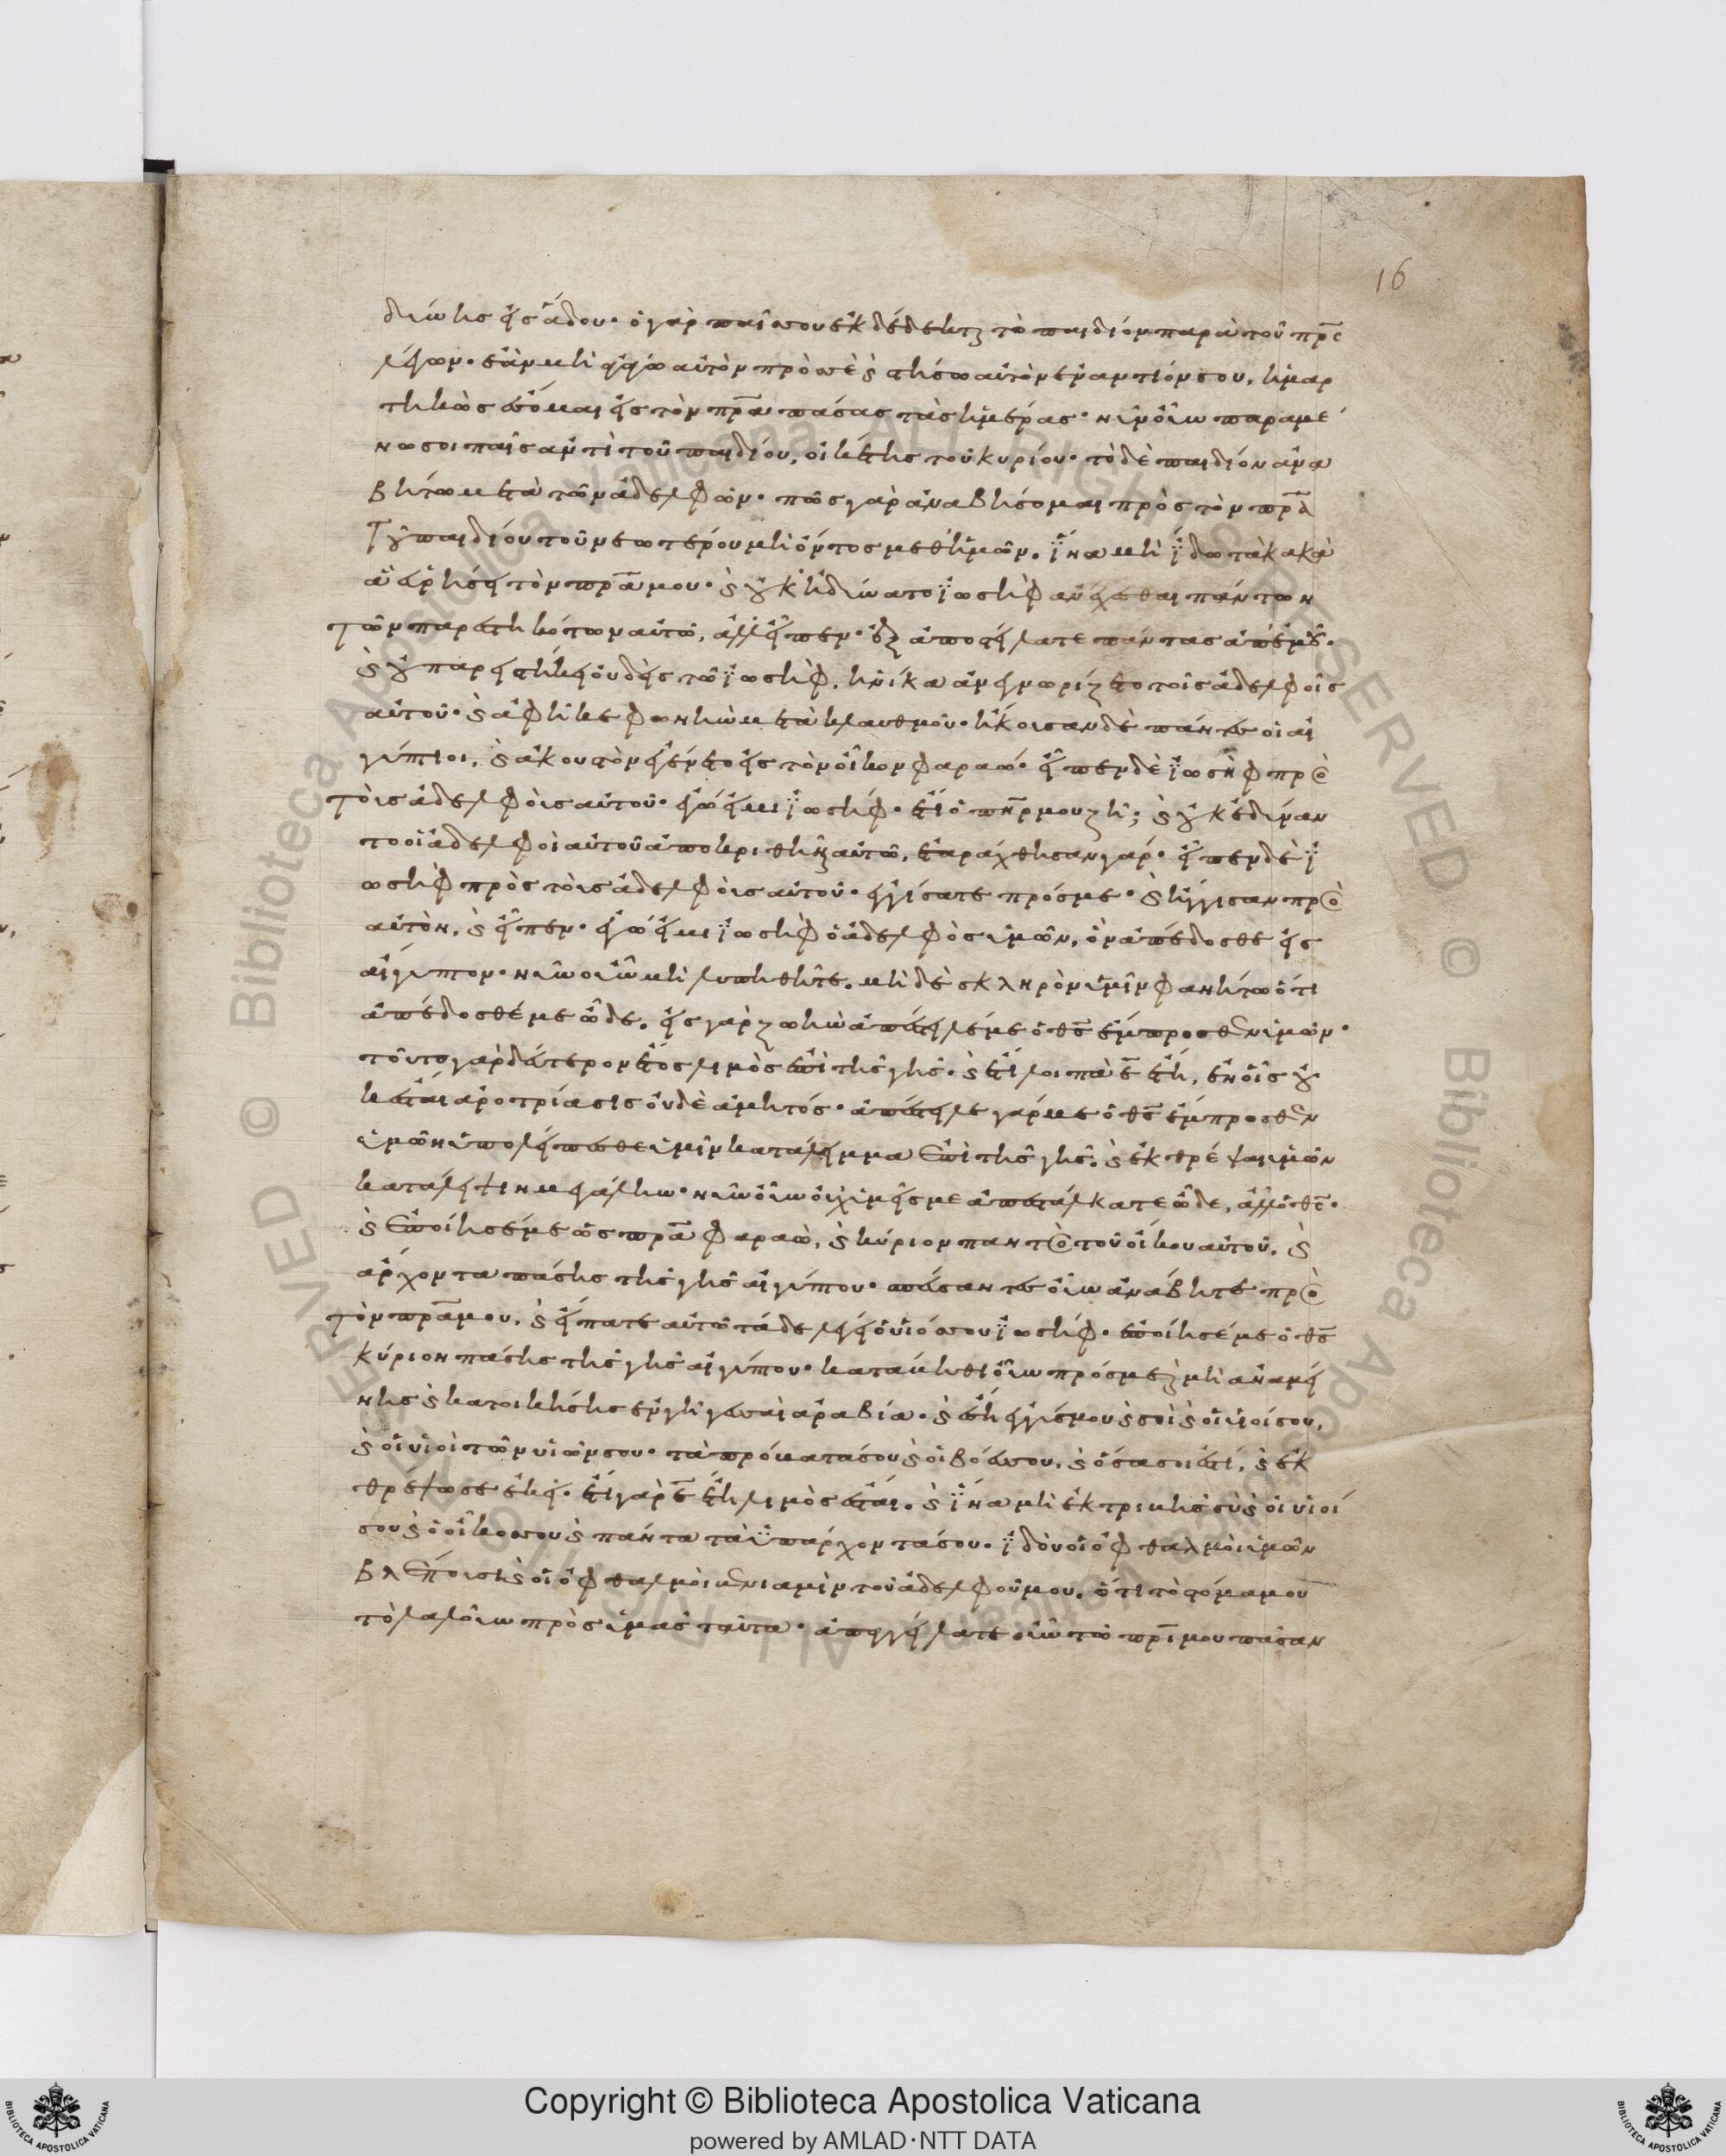 16
δύνης εἰς ἅδου· ὁ γὰρ παῖς σου ἐκδέδεκται τὸ παιδίον παρὰ τοῦ πρ̅ς
λέγων· ἐὰν μὴ ἀγάγω αὐτὸν πρός σε καὶ στήσω αὐτὸν ἐναντίον σου, ἡμαρ
τηκὼς ἔσομαι εἰς τὸν πρ̅α πάσας τὰς ἡμέρας· νῦν οὖν παραμέ
νω σοι παῖς ἀντὶ τοῦ παιδίου, οἰκέτης τοῦ κυρίου· τὸ δὲ παιδίον ἀνα
βήτω μετὰ τῶν ἀδελφῶν· πῶς γὰρ ἀναβήσομαι πρὸς τὸν πρ̅α
τοῦ παιδίου τοῦ νεωτέρου μὴ ὄντος μεθ' ἡμῶν. ἵνα μὴ ἴδω τὰ κακὰ
ἃ εὑρήσει τὸν πρ̅α μου· καὶ οὐκ ἠδύνατο ϊωσὴφ ἀνέχεσθαι πάντων
τῶν παρεστηκότων αὐτῶ, ἀλλ' εἶπεν· ἐξαποστείλατε πάντας ἀπ' ἐμοῦ·
καὶ οὐ παρειστήκει οὐδεὶς τῶ ϊωσὴφ, ἡνίκα ἀνεγνωρίζετο τοῖς ἀδελφοῖς
αὐτοῦ· καὶ ἀφῆκε φωνὴν μετὰ κλαυθμοῦ· ἤκουσαν δὲ πάντες οἱ αἰ
γύπτιοι, καὶ ἀκουστὸν ἐγένετο εἰς τὸν οἶκον φαραώ· εἶπεν δὲ ϊωσὴφ πρὸς
τοὺς ἀδελφοὺς αὐτοῦ· ἐγώ εἰμι ϊωσήφ· ἔτι ὁ πη̅ρ μου ζῆ; καὶ οὐκ ἐδύναν
το οἱ ἀδελφοὶ αὐτοῦ ἀποκριθῆναι αὐτῶ, ἐταράχθησαν γάρ· εἶπεν δὲ ϊ
ωσὴφ πρὸς τοὺς ἀδελφοὺς αὐτοῦ· ἐγγίσατε πρός με· καὶ ἤγγισαν πρὸς
αὐτόν, καὶ εἶπεν· ἐγώ εἰμι ϊωσὴφ ὁ ἀδελφὸς ὑμῶν, ὃν ἀπέδοσθε εἰς
αἴγυπτον· νῦν οὖν μὴ λυπηθῆτε. μὴ δὲ σκληρὸν ὑμῖν φανήτω ὅτι
ἀπέδοσθέ με ὧδε. εἰς γὰρ ζωὴν ἀπέστειλέ με ὁ θς̅ ἔμπροσθεν ὑμῶν·
τοῦτο γὰρ δεύτερον ἔτος λιμὸς ἐπὶ τῆς γῆς· καὶ ἔτι λοιπὰ ε̅ ἔτη, ἐν οἷς οὐ
κ ἔσται ἀροτρίασις οὐδὲ ἀμητός· ἀπέστειλε γάρ με ὁ θς̅ ἔμπροσθεν
ὑμῶν ὑπολείπεσθαι ὑμῖν κατάλειμμα ἐπὶ τῆς γῆς. καὶ ἐκθρέψαι ὑμῶν
κατάλειψιν μεγάλην· νῦν οὖν οὐχ ὑμεῖς με ἀπεστάλκατε ὧδε, ἀλλ' ὁ θς̅·
καὶ ἐποίησέ με ὡς πρ̅α φαραὼ, καὶ κύριον παντὸς τοῦ οἴκου αὐτοῦ. καὶ
ἄρχοντα πάσης τῆς γῆς αἰγύπτου· σπεύσαντες οὖν ἀνάβητε πρὸς
τὸν πρ̅α μου. καὶ εἴπατε αὐτῶ τάδε λέγει ὁ υἱός σου ϊωσήφ· ἐποίησέ με ὁ θς̅
κύριον πάσης τῆς γῆς αἰγύπτου· κατάβηθι οὖν πρός με καὶ μὴ ἀναμεί
νης καὶ κατοικήσης ἐν γῆ γεσαὶ ἀραβία· καὶ ἔση ἐγγύς μου καὶ σοὶ καὶ οἱ υἱοί σου,
καὶ οἱ υἱοὶ τῶν υἱῶν σου· τὰ πρόβατά σου καὶ οἱ βόες σου, καὶ ὅσα σοι ἐστί, καὶ ἐκ
θρέψω σε ἐκεῖ· ἔτι γὰρ ε̅ ἔτη λιμὸς ἔσται. καὶ ἵνα μὴ ἐκτριβῆς σὺ καὶ οἱ υἱοί
σου καὶ ὁ οἶκος σου καὶ πάντα τὰ ὑπάρχοντά σου· ϊδοὺ οἱ ὀφθαλμοὶ ὑμῶν
βλέπουσι καὶ οἱ ὀφθαλμοὶ βενιαμὶν τοῦ ἀδελφοῦ μου. ὅτι τὸ στόμα μου
τὸ λαλοῦν πρὸς ὑμᾶς ταῦτα· ἀπαγγείλατε οὖν τῶ πρ̅ι μου πᾶσαν
Copyright © Biblioteca Apostolica Vaticana
powered by AMLAD·NTT DATA